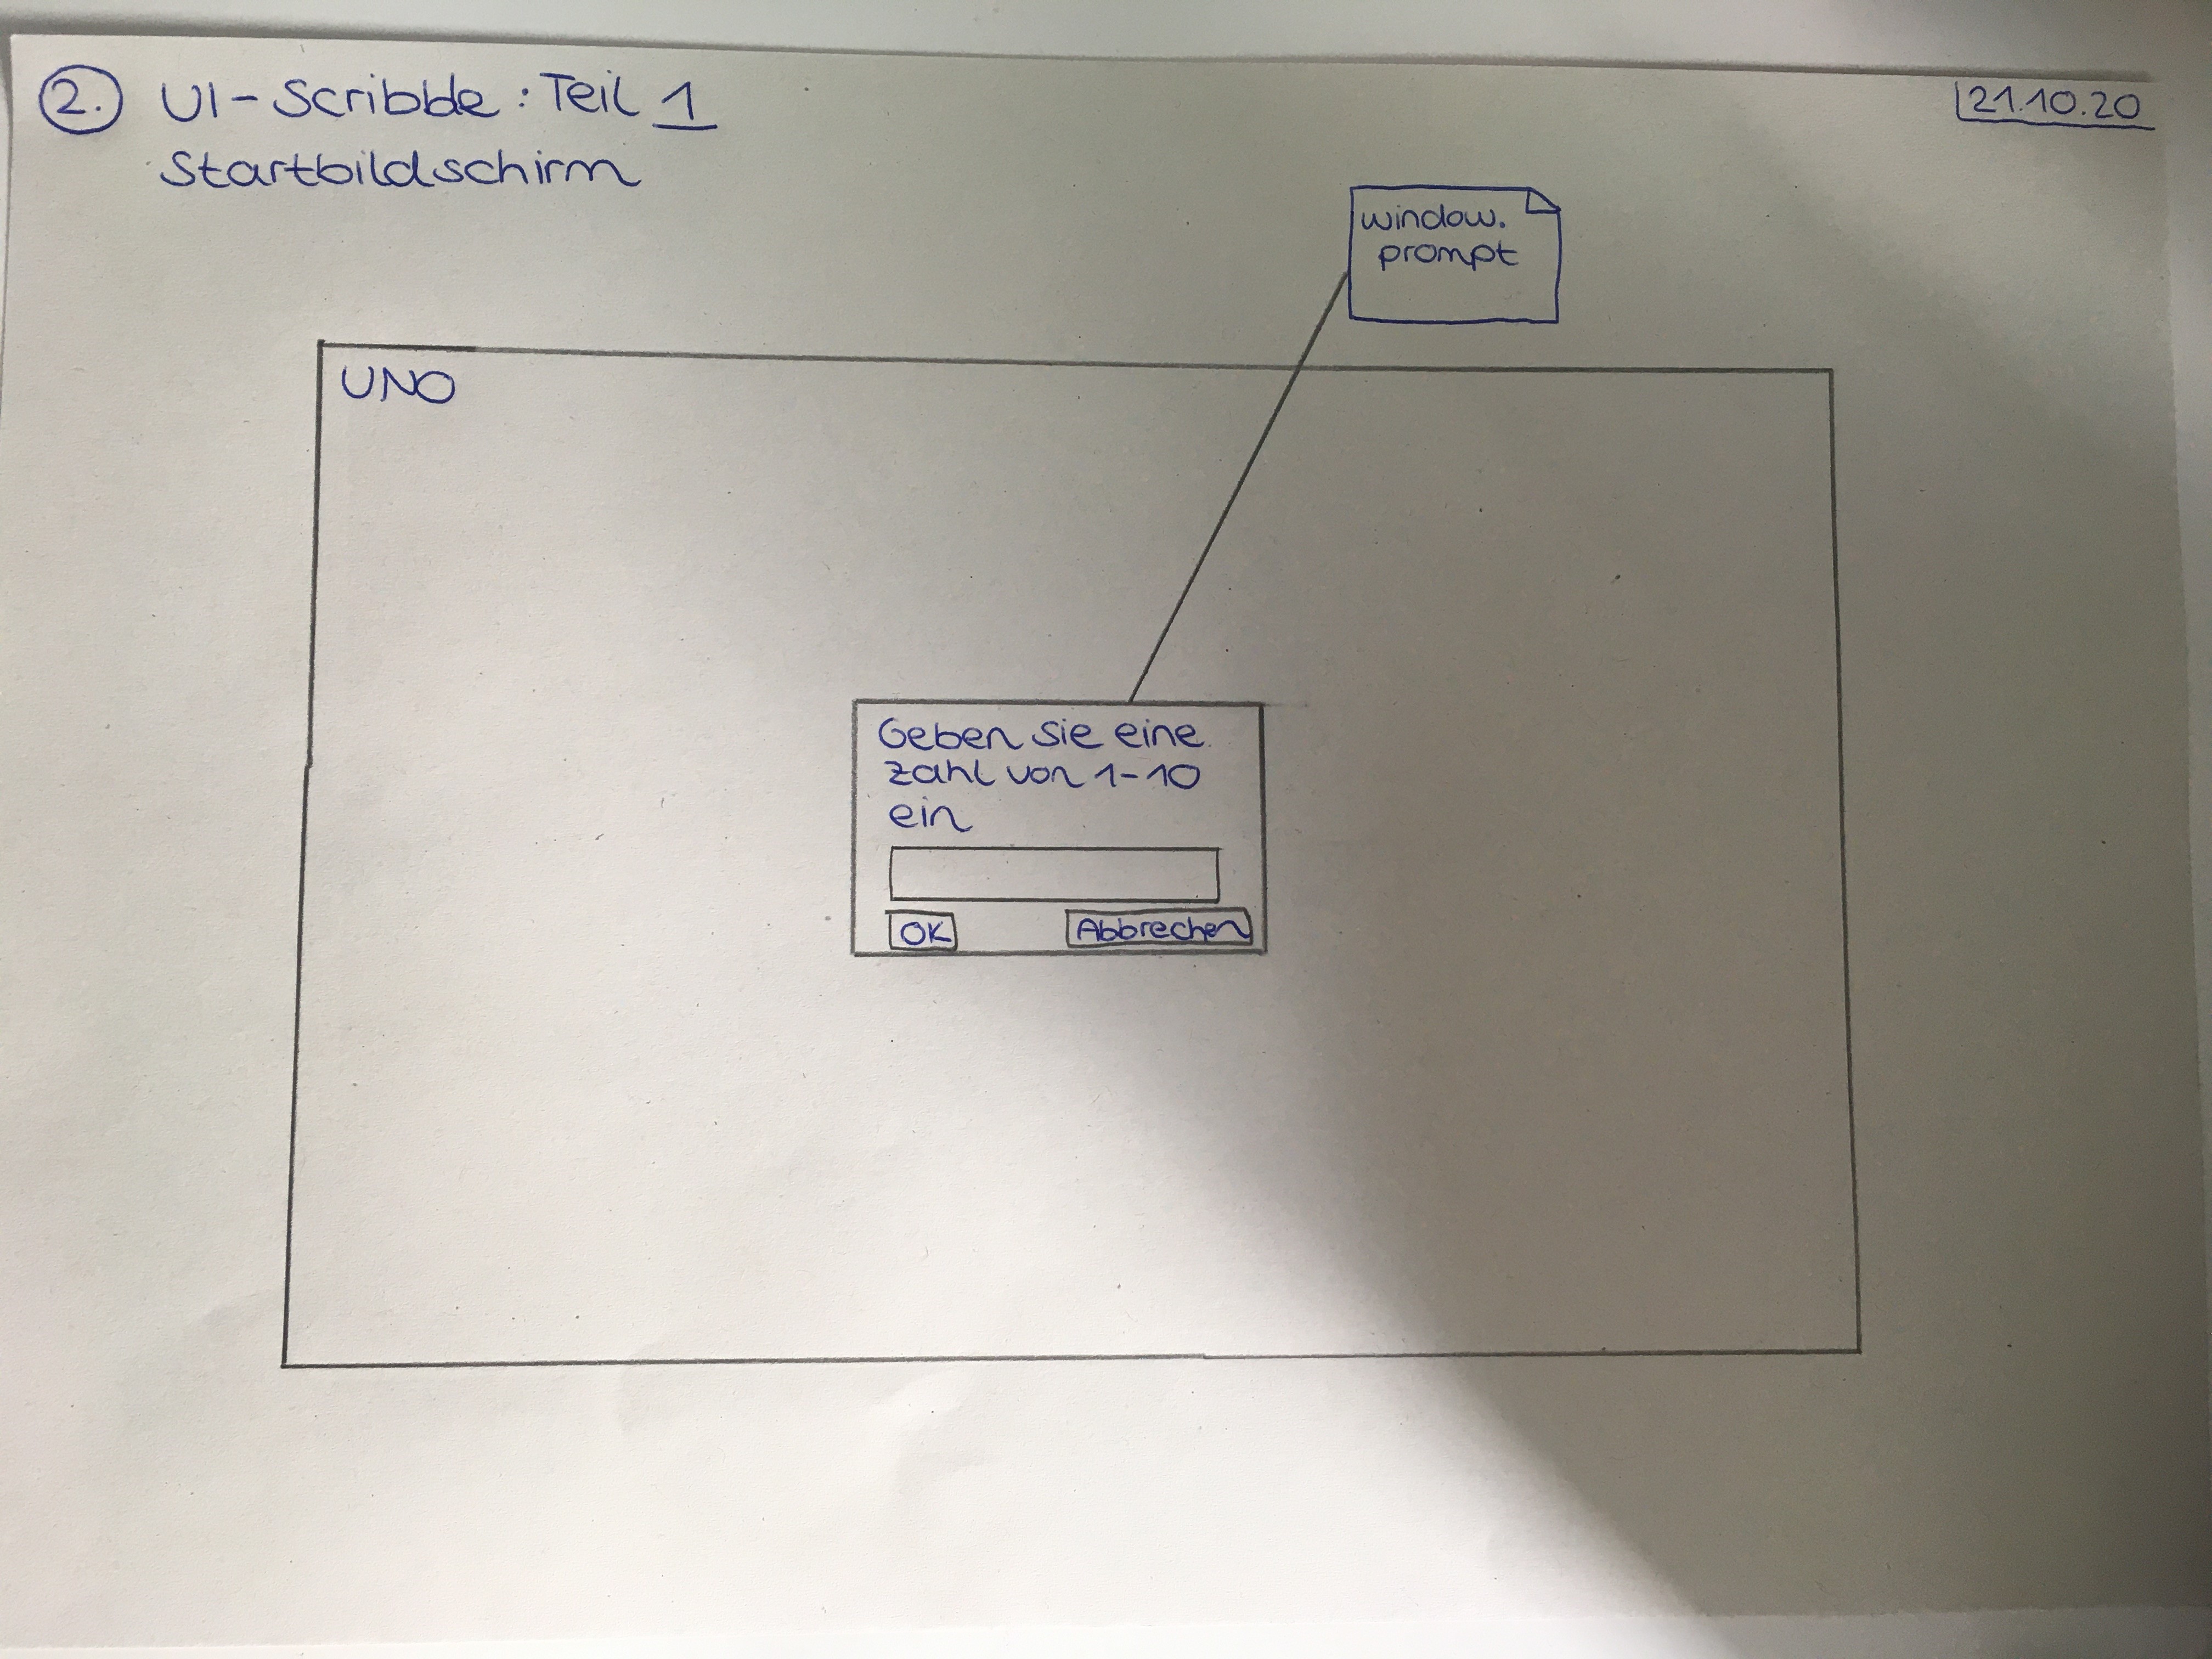 2. UI-Scribble: Teil 1
21.10.20
Startbildschirm
window.
prompt
UNO
Geben Sie eine
Zahl von 1-10
ein
OK
Abbrechen